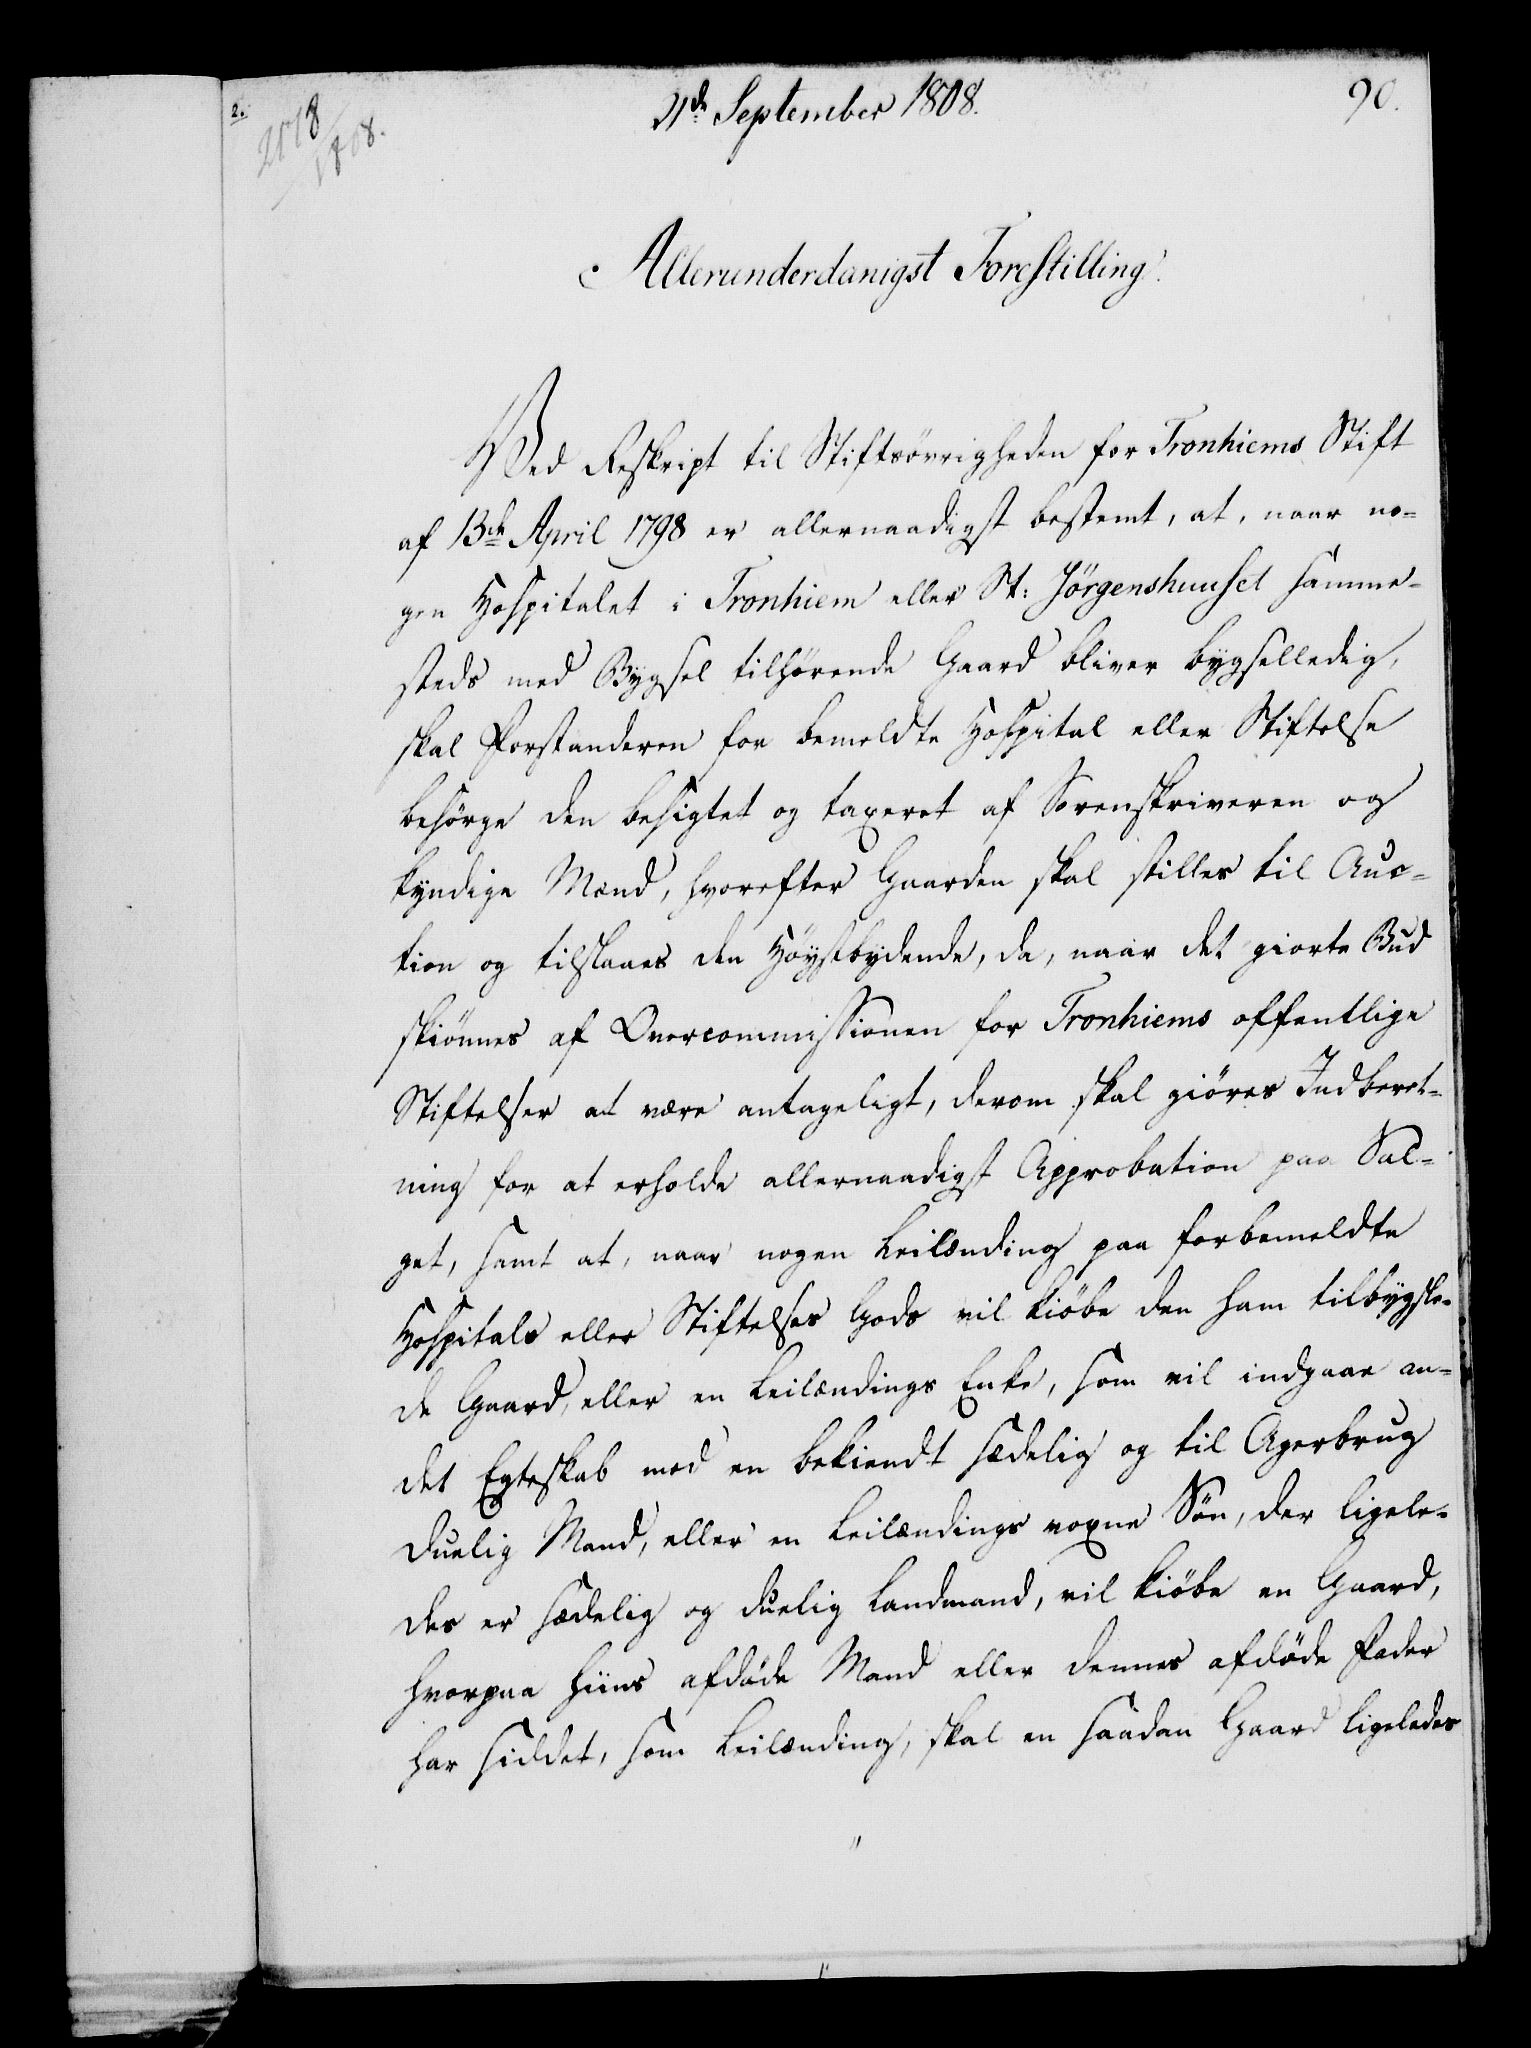 2.
2518
1808.
21de September 1808.
90.
Allerunderdanigst Forestilling.
Ved Reskript til Stiftsövrigheden for Tronhiems Stift
af 13de April 1798 er allernaadigst bestemt, at, naar no-
gen Hospitalet i Tronhiem eller St: Jörgenshuuset samme-
steds med Bygsel tilhörende Gaard bliver bygselledig,
skal Forstanderen for bemeldte Hospital eller Stiftelse
besörge den besigtet og taxeret af Sorenskriveren og
kyndige Mænd, hvorefter Gaarden skal stilles til Auc-
tion og tilslaaes den Höystbydende, da, naar det giorte Bud
skiönnes af Overcommissionen for Tronhiems offentlige
Stiftelser at være antageligt, derom skal giöres Indberet-
ning for at erholde allernaadigst Approbation paa Sal-
get, samt at, naar nogen Leilænding paa forbemeldte
Hospitals eller Stiftelses Gods vil kiöbe den ham tilbygsle-
de Gaard, eller en Leilændings Enke, som vil indgaae an-
det Egteskab med en bekiendt sædelig og til Agerbrug
duelig Mand, eller en Leilændings voxne Sön, der ligele-
des er sædelig og duelig Landmand, vil kiöbe en Gaard,
hvorpaa hiins afdöde Mand eller dennes afdöde Fader
har siddet, som Leilænding, skal en saadan Gaard ligeledes